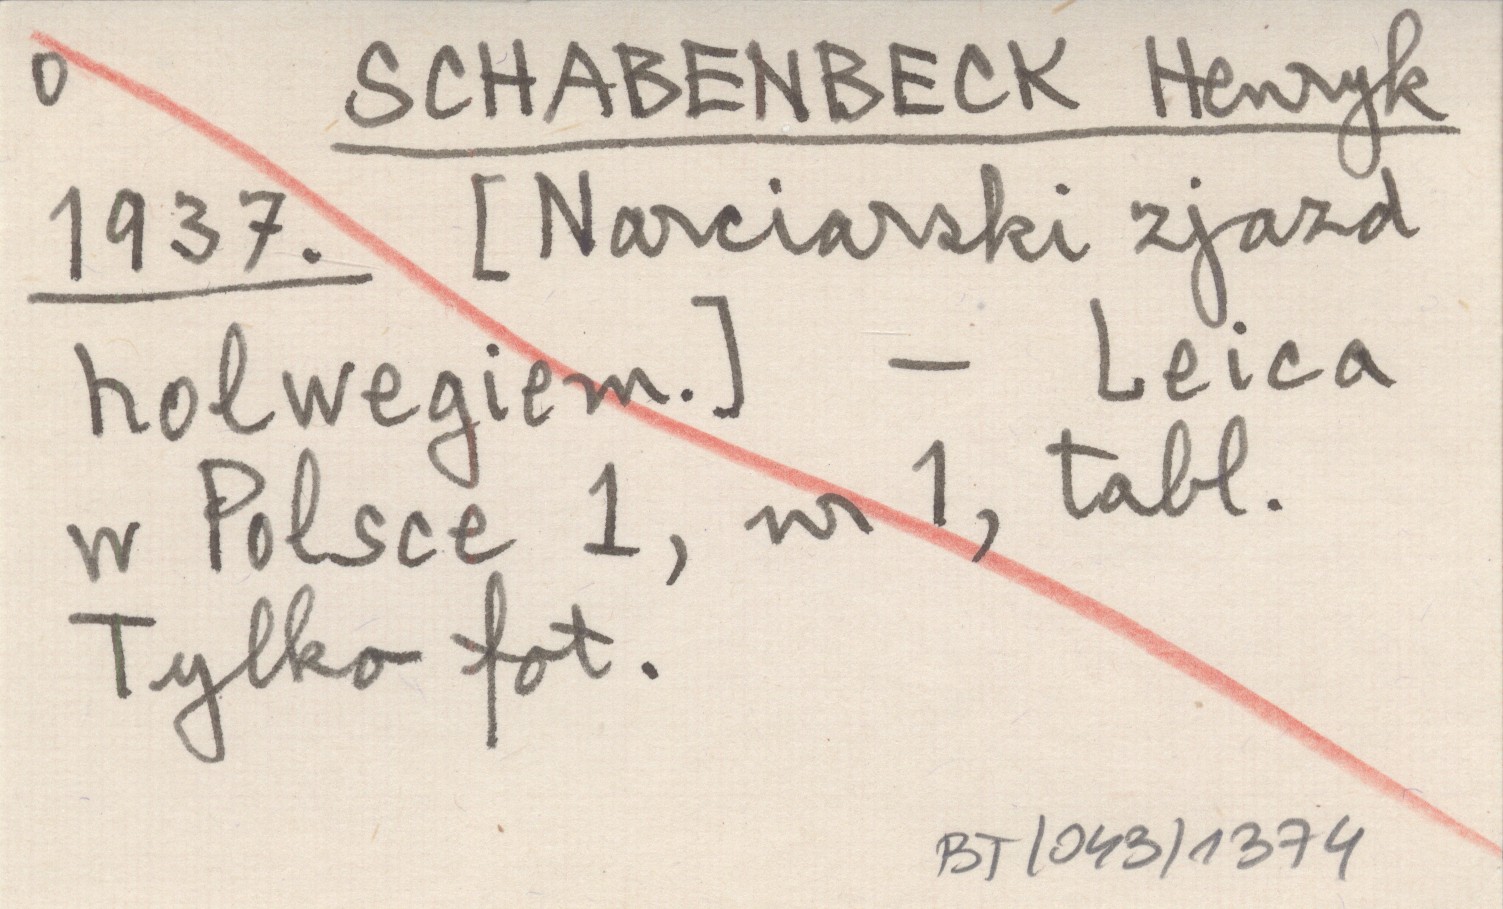 0 SCHABENBECK Henryk
1937. [Narciarski zjazd
holwegiem.] - Leica
w Polsce 1, nr 1, tabl.
Tylko fot.
BT/043/1374